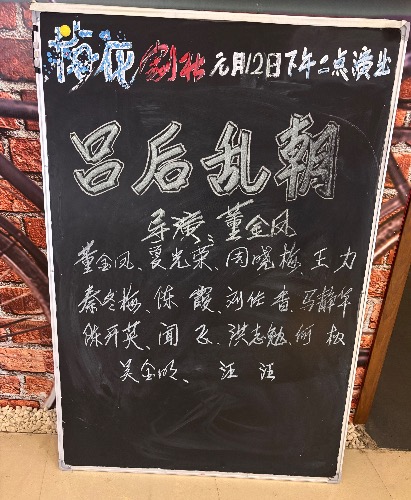 梅花剧社 元月12日下午二点演出
吕后乱朝
导演、董金凤
董金凤、夏光荣、周晓梅、王 力
秦冬梅、陈 霞、刘仕香、马静华
陈开英、闻 飞、洪志勉、何 权
吴金明、汪 汪